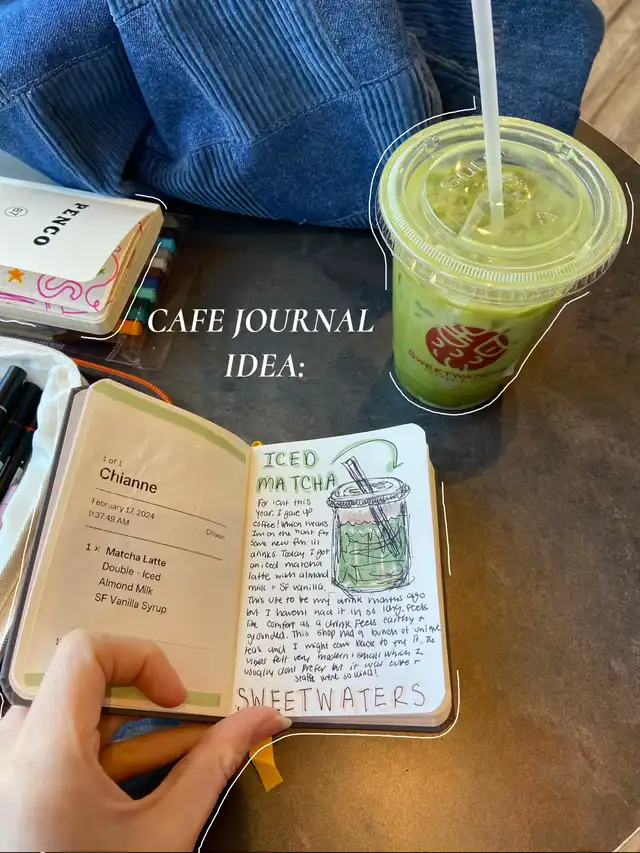 PENCO
SWEETWATERS
CAFE JOURNAL
IDEA:
1 of 1
Chianne
February 17, 2024
9:37:49 AM
1 x Matcha Latte
Double · Iced
Almond Milk
SF Vanilla Syrup
ICED
MATCHA
For lent this
year. I gave up
coffee! Which means
Im on the hunt for
some new fun lil
drinks. Today I got
an iced matcha
latte with almond
milk + SF vanilla.
This use to be my drink months ago
but I havent had it in so long. Feels
like comfort as a drink. Feels earthy +
grounded. This shop had a bunch of unique
teas and I might come back to try it. The
vibes felt very modern + small which I
usually dont prefer but it was cute +
staff were so kind!
SWEETWATERS